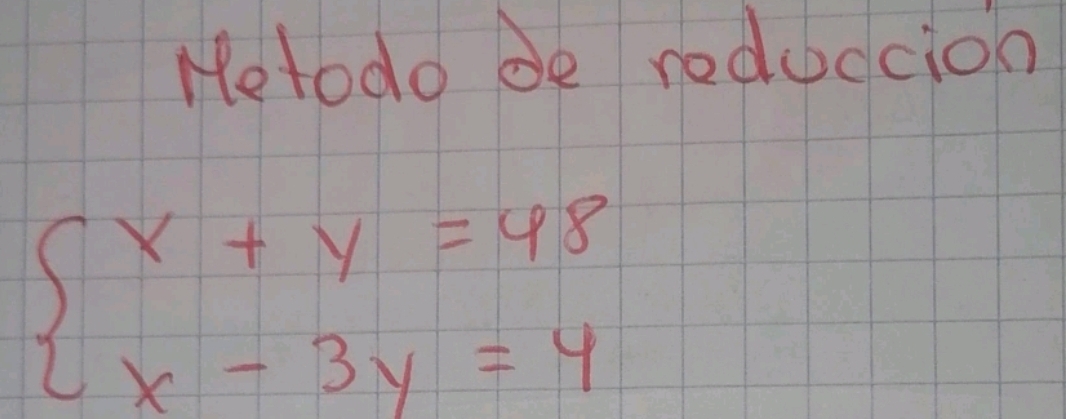 Metodo de reducción
x + y = 48
x - 3y = 4